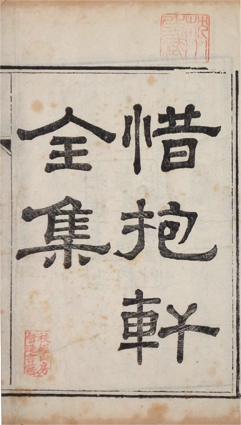 惜抱軒
全集